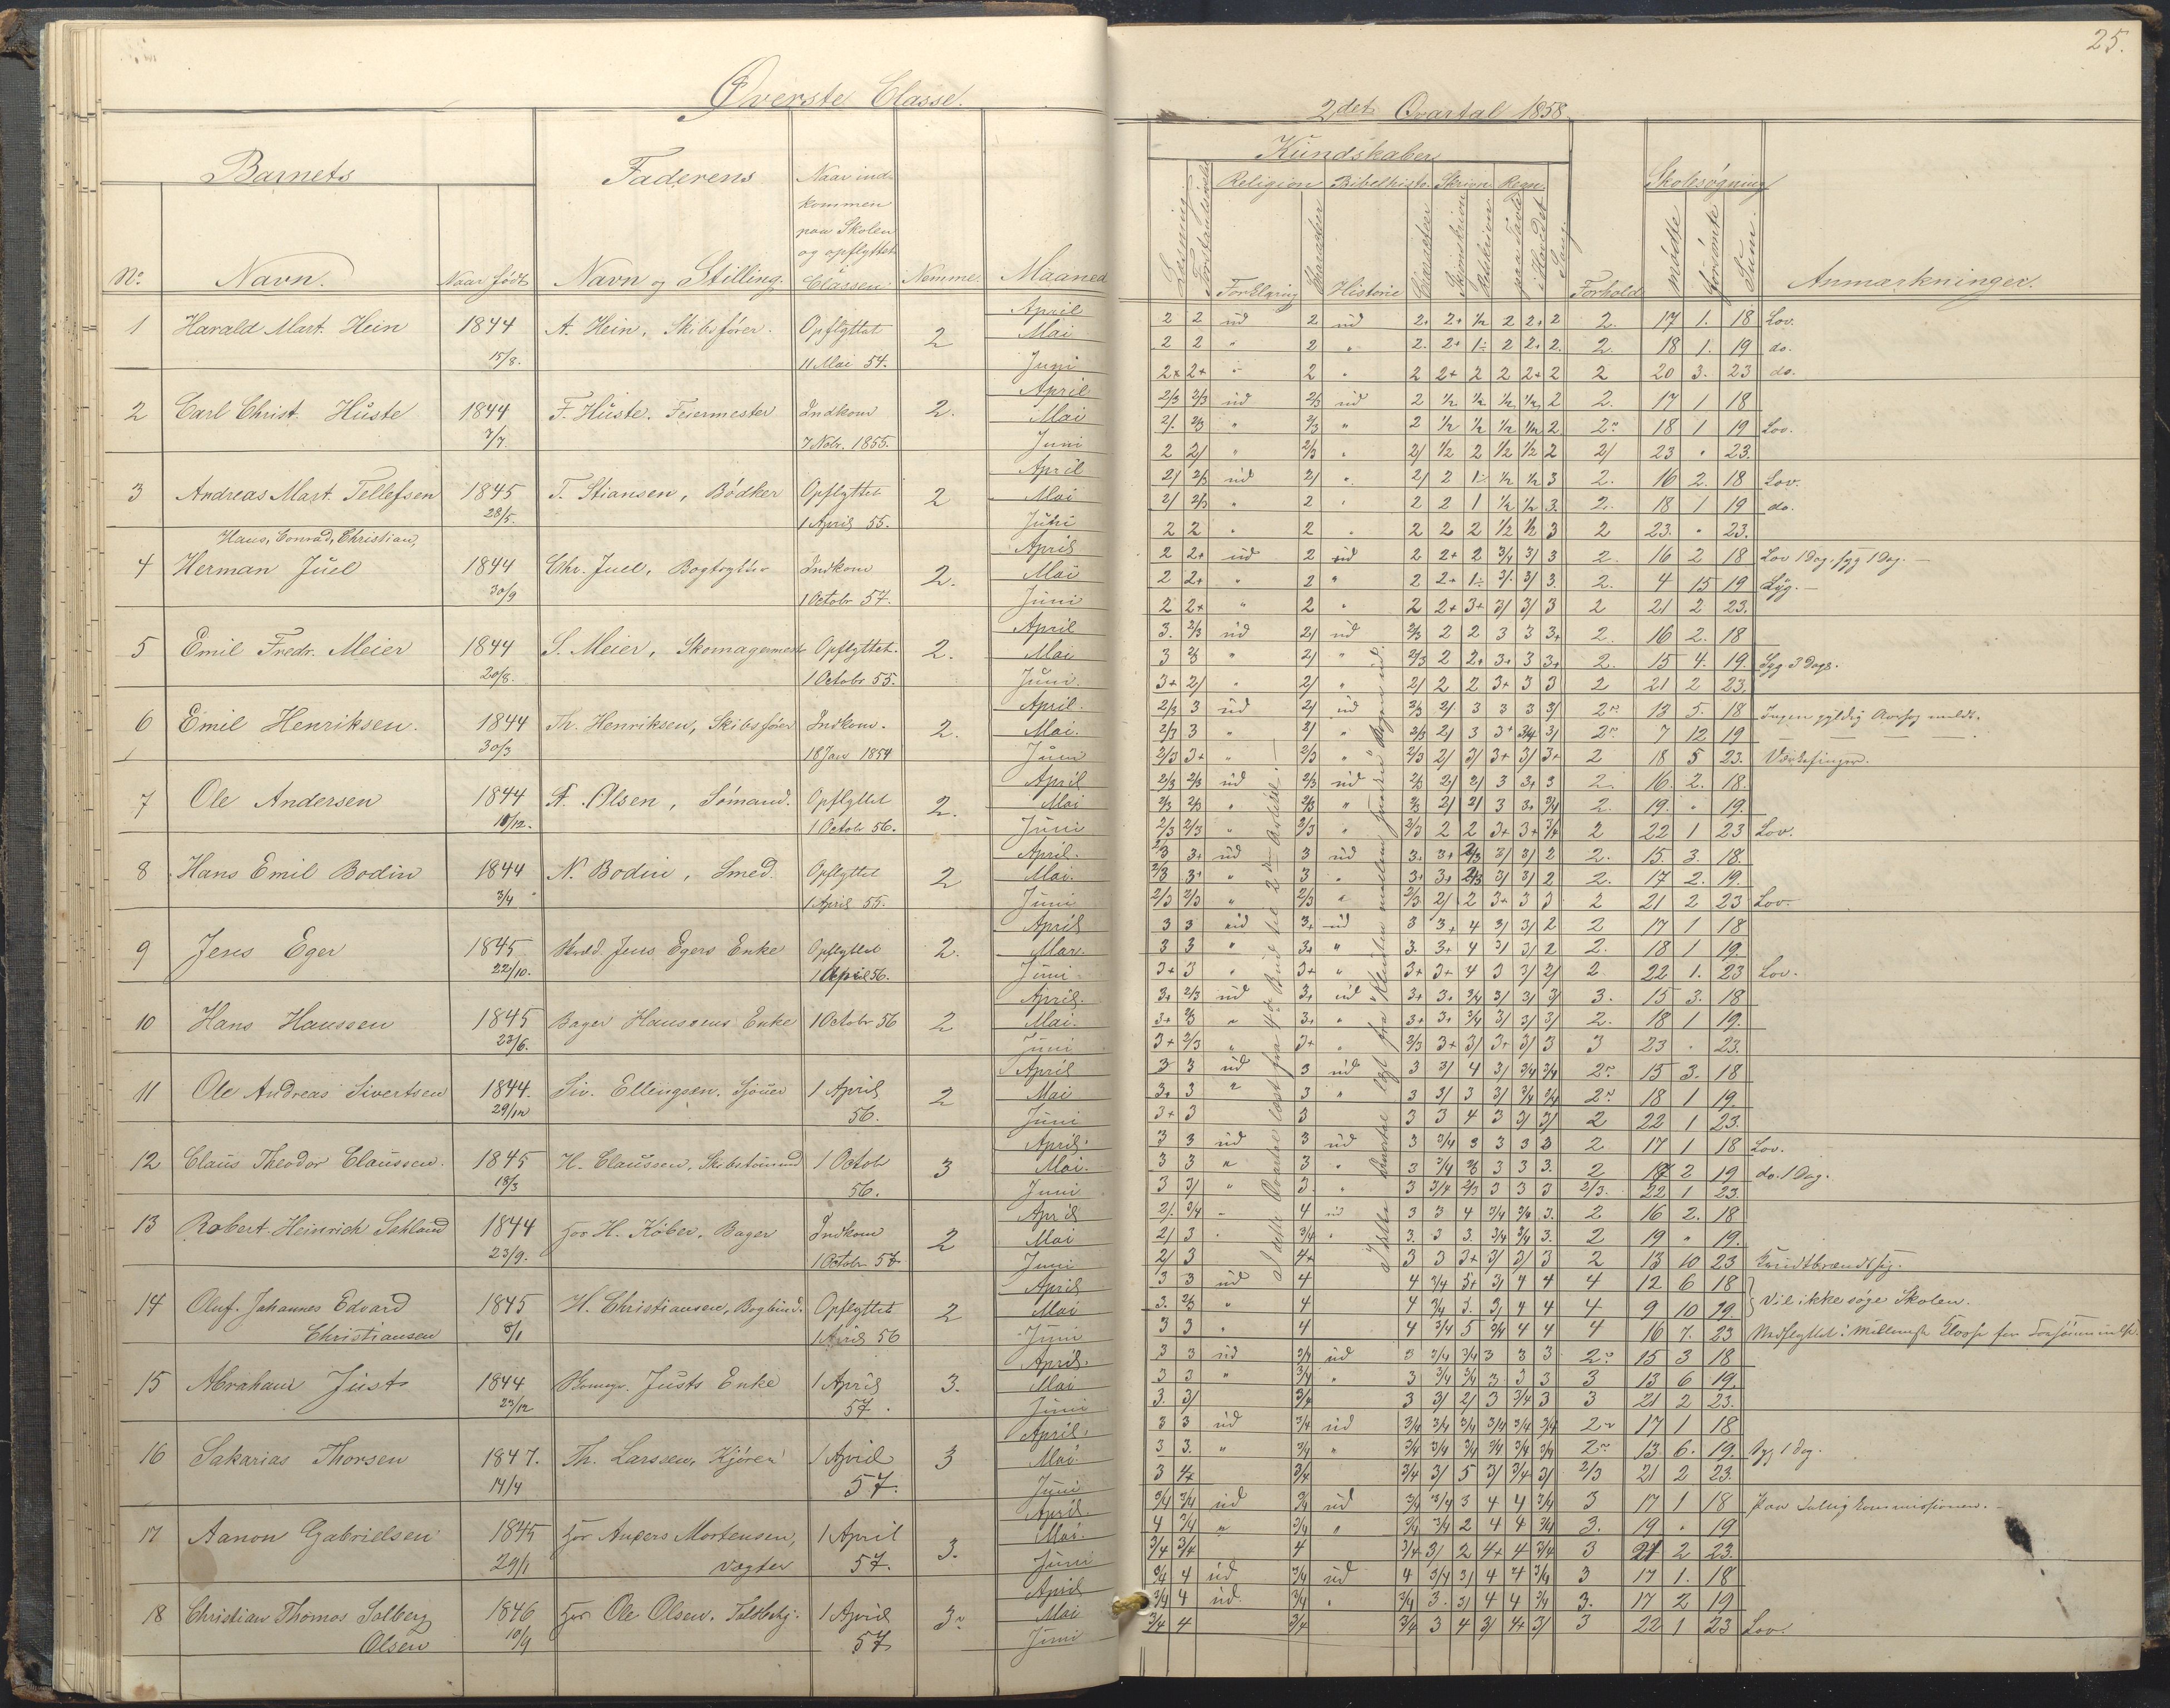 Øverste Classe.
Barnets
Faderens
Naar ind-
kommen
paa Skolen
og opflyttet
Classen
No
Navn.
Naar født
Navn og Stilling.
Nemme.
Maaned
1 Harald Mart. Hein 1844 A. Hein, Skibsfører. Opflyttet 2 April Mai Juni
15/8. 11 Mai 54.
2 Carl Christ. Huste 1844 F. Huste. Feiermester Indkom 2. April Mai Juni
7/7. 7 Nobr. 1855.
3 Andreas Mart. Tellefsen 1845 T. Stiansen, Bødker Opflyttet 2 April Mai Juni
28/5. 1 April 55.
Hans, Conrad, Christian,
4 Herman Juel 1844 Chr. Juel, Bogtrykker Indkom 2. April Mai Juni
30/9 1 Octobr 57.
5 Emil Fredr. Meier 1844 S. Meier, Skomagermest Opflyttet. 2. April Mai Juni.
20/8. 1 Octobr 55.
6 Emil Henriksen. 1844 Th. Henriksen, Skibsfører Indkom. 2. April. Mai. Juni
30/3 18 Janr 1854
7 Ole Andersen 1844 A. Olsen, Sømand. Opflyttet 2. April Mai Juni
10/12. 1 Octobr 56.
8 Hans Emil Bodin 1844 N. Bodin, Smed. Opflyttet 2 April. Mai. Juni
3/4 1 April 55.
9 Jens Eger 1845 Jens Egers Enke Opflyttet 2. April Mai. Juni
22/10. 1 April 56.
10 Hans Hanssen 1845 Bager Hanssens Enke 1 Octobr 56 2 April. Mai. Juni
23/6.
11 Ole Andreas Sivertsen 1844. Siv. Ellingsen. Sjouer 1 April 2 April Mai Juni
29/12 56.
12 Claus Theodor Claussen. 1845 H. Claussen, Skibstømmd 1 Octob 3 April. Mai. Juni
18/3 56.
13 Robert Heinrich Sahland 1844 hos H. Köber, Bager Indkom 2 April Mai Juni
23/9. 1 Octobr 57
14 Oluf. Johannes Edvard 1845 H. Christiansen, Bogbind. Opflyttet 2 April Mai Juni
Christiansen 8/1 1 April 56
15 Abraham Just 1844 Justs Enke 1 April 3. April. Mai Juni
23/12 57.
16 Sakarias Thorsen 1847. Th. Larssen, Kjører 1 April 3 April. Mai. Juni
14/4 57.
17 Aanon Gabrielsen 1845 hos Anders Mortensen, 1 April 3. April Mai. Juni
29/1 Vægter 57.
18 Christian Thomas Solberg 1846 hos Ole Olsen, 1 April 3 April Mai Juni
Olsen 10/9 57
25.
2det Qvartal 1858.
Kundskaber
Læsning. Forstandsøvelse Religion Bibelhisto. Skrivn. Regn. Sang.
Forklaring Karacter Historie Caracter Skjønskrivn Retskrivn paa Tavle i Hovedet
Forhold
Skolesøgning
mødte forsømte Sum.
Anmærkninger.
2 2 ud 2 ud 2+ 2+ 1/2 2 2+ 2 2. 17 1. 18 Lov.
2 2 " 2 " 2. 2+ 1÷ 2 2+ 2. 2. 18 1. 19 do.
2+ 2+ " 2 " 2 2+ 2 2 2+ 2 2 20 3. 23 do.
2/3 2/3 ud 2/3 ud 2 1/2 1/2 1/2 1/2 2 2. 17 1 18
2/. 2/3 " 2/3 " 2 1/2 1/2 1/2 1/2 2 2 18 1 19 Lov.
2 2/ " 2/3 " 2/ 1/2 2 1/2 1/2 2 2/ 23 " 23.
2/ 2/3 ud 2/ " 2/ 2 1÷ 1/2 1/2 3 2. 16 2. 18 Lov.
2/ 2/3 " 2 " 2 2 1 1/2 1/2 3. 2. 18 1 19 do.
2 2 " 2 " 2 2 2 1/2 1/2 3 2 23. " 23.
2 2+ ud 2 ud 2 2+ 2 3/4 3/ 3 2. 16 2 18 Lov 1 Dag. syg 1 Dag.
2 2+ " 2 " 2 2+ 1÷ 3/. 3/ 3. 2. 4 15 19 Syg.
2 2+ " 2 " 2 2+ 3+ 3/ 3/ 3 2 21 2 23.
3. 2/3 ud 2/ ud 2/3 2 2 3 3 3+ 2. 16 2. 18
3 2/3 " 2/ " 2/3 2 2+ 3+ 3 3+ 2. 15 4. 19. Syg 3 Dage.
3+ 2/ " 2/ " 2/ 2 2 3+ 3 3 2 21 2 23.
2/3 3 ud 2/ ud 2/3 2/ 3 3 3 3/ 2 13 5. 18 Ingen gyldig Aarsag meldt.
2/3 3 " 2/ " 2/3 2/ 3 3+ 3/4 3/ 2 7 12 19 — — —
2/3 3+ " 2/3 " 2/3 2/ 3/ 3+ 3/ 3+ 2 18 5 23. Værkefinger.
2/3 2/3 ud 2/3 ud 2/3 2/ 2/ 3 3+ 3 2. 16. 2. 18.
2/3 2/3 " 2/3 " 2/3 2/ 2/ 3 3+ 3/4 2. 19. " 19.
2/3 2/3 " 2/3 " 2/3 2 2 3+ 3+ 3/4 2 22 1 23 Lov.
2/3 3+ ud 3 ud 3. 3+ 2/3 3/ 3/ 2 2. 15. 3. 18.
2/3 3+ " 3 " 3+ 3+ 2/3 3/ 3/ 2 2. 17 2. 19.
2/3 2/3 " 2/3 " 2/3 2/ 2 3+ 3 3 2 21 2 23 Lov.
3 3 ud 3+ ud 3 3+ 4 3/ 3/ 2 2 17 1 18
3 3 " 3+ " 3. 3+ 4 3/ 3/ 2 2. 18 1 19.
3+ 3 " 3+ " 3+ 3+ 4 3 3/ 2/ 2 22 1. 23 Lov.
3+ 2/3 ud 3+ ud 3+ 3+ 3/4 3/ 3/ 3/ 3. 15 3. 18
3+ 2/3 " 3+ " 3+ 3+ 3/4 3/ 3/ 3/ 2. 18 1 19.
3+ 2/3 " 3+ " 2/3 3+ 3/ 3+ 3/ 3 3 23 " 23.
3 3 ud 3 ud 3 3/ 4 3/ 3/4 3/4 2 15 3. 18
3+ 3 " 3 " 3 3/ 3 3/ 3/4 3/4 2 18 1 19
3+ 3 3 3 3 4 3 3/ 3/ 2 22 1 23.
3 3 ud 3 ud 3 3/4 3 3 3 3 2 17 1 18 Lov.
3 3 " 3 " 3 3/4 2/3 3 3 3. 2 17 2 19 do. 1 Dag.
3 3/ " 3. " 3 3/4 2/3 3 3 3 2/3. 22 1 23.
2/. 3/4 " 4 ud 3 3 4 3/4 3/4 3. 2 16 2. 18
2/ 3 " 3/4 " 3. 3 3. 3/4 3/4 3. 2 19 " 19.
2/ 3 4+ 3 3 3+ 3/ 3/ 3 2 13 10 23
3 3 ud 4 4 3/4 5+ 3/ 4 4 4 12 6 18
3. 2/3 " 4 4 3/4 5. 3/ 4 4 4 9 10 19. Vil ikke søge Skolen.
3 3 " 4 4 3/4 5 3/4 4 4 4 16 7. 23 Nedflyttet i Mellemste Classe for Forsømmelse.
3 3 ud 3/4 ud 3 3/4 3/4 3 3 3 2 15 3 18
3 3 " 3/4 " 3 3/4 3/4 3 3 3 3 13 6 19.
3. 3/ 3/4 3 3/ 2/ 3 3/4 3 3 21 2 23.
3 3 ud 3/4 ud 3/4 3/4 3/4 3/4 3/4 3/4 2 17 1 18
3 3. " 3/4 " 3/4 3/4 3/4 3/4 3/4 3/4 2 13 6. 19. Syg 1 Dag.
3 3/4 3/4 3/ 5 3/ 3/4 3/ 2/3 21 2 23.
3/4 3/4 ud 3/4 ud 3/4 3/4 3 4 4 3/4 3 17 1 18
4 3/4 " 3/4 " 3/4 3/4 2 4 4 3/4 3. 19 " 19
3/4 3/4 4 3/4 3/ 2 4+ 4 3/4 3 21 2 23.
3/4 4 ud 3/4 ud 4 3/4 3/ 4 4 3/4 3 17 1. 18
3/4 4 ud. 3/4 " 3/4 3. 3/ 4 4 3/4 3. 17 2 19
3/4 4 3/4 3/4 3 4 3/ 4+ 3/ 3 22 1 23 Lov.
I dette Qvartal læst fra 4de Bud til 2den Artikel.
I dette Qvartal